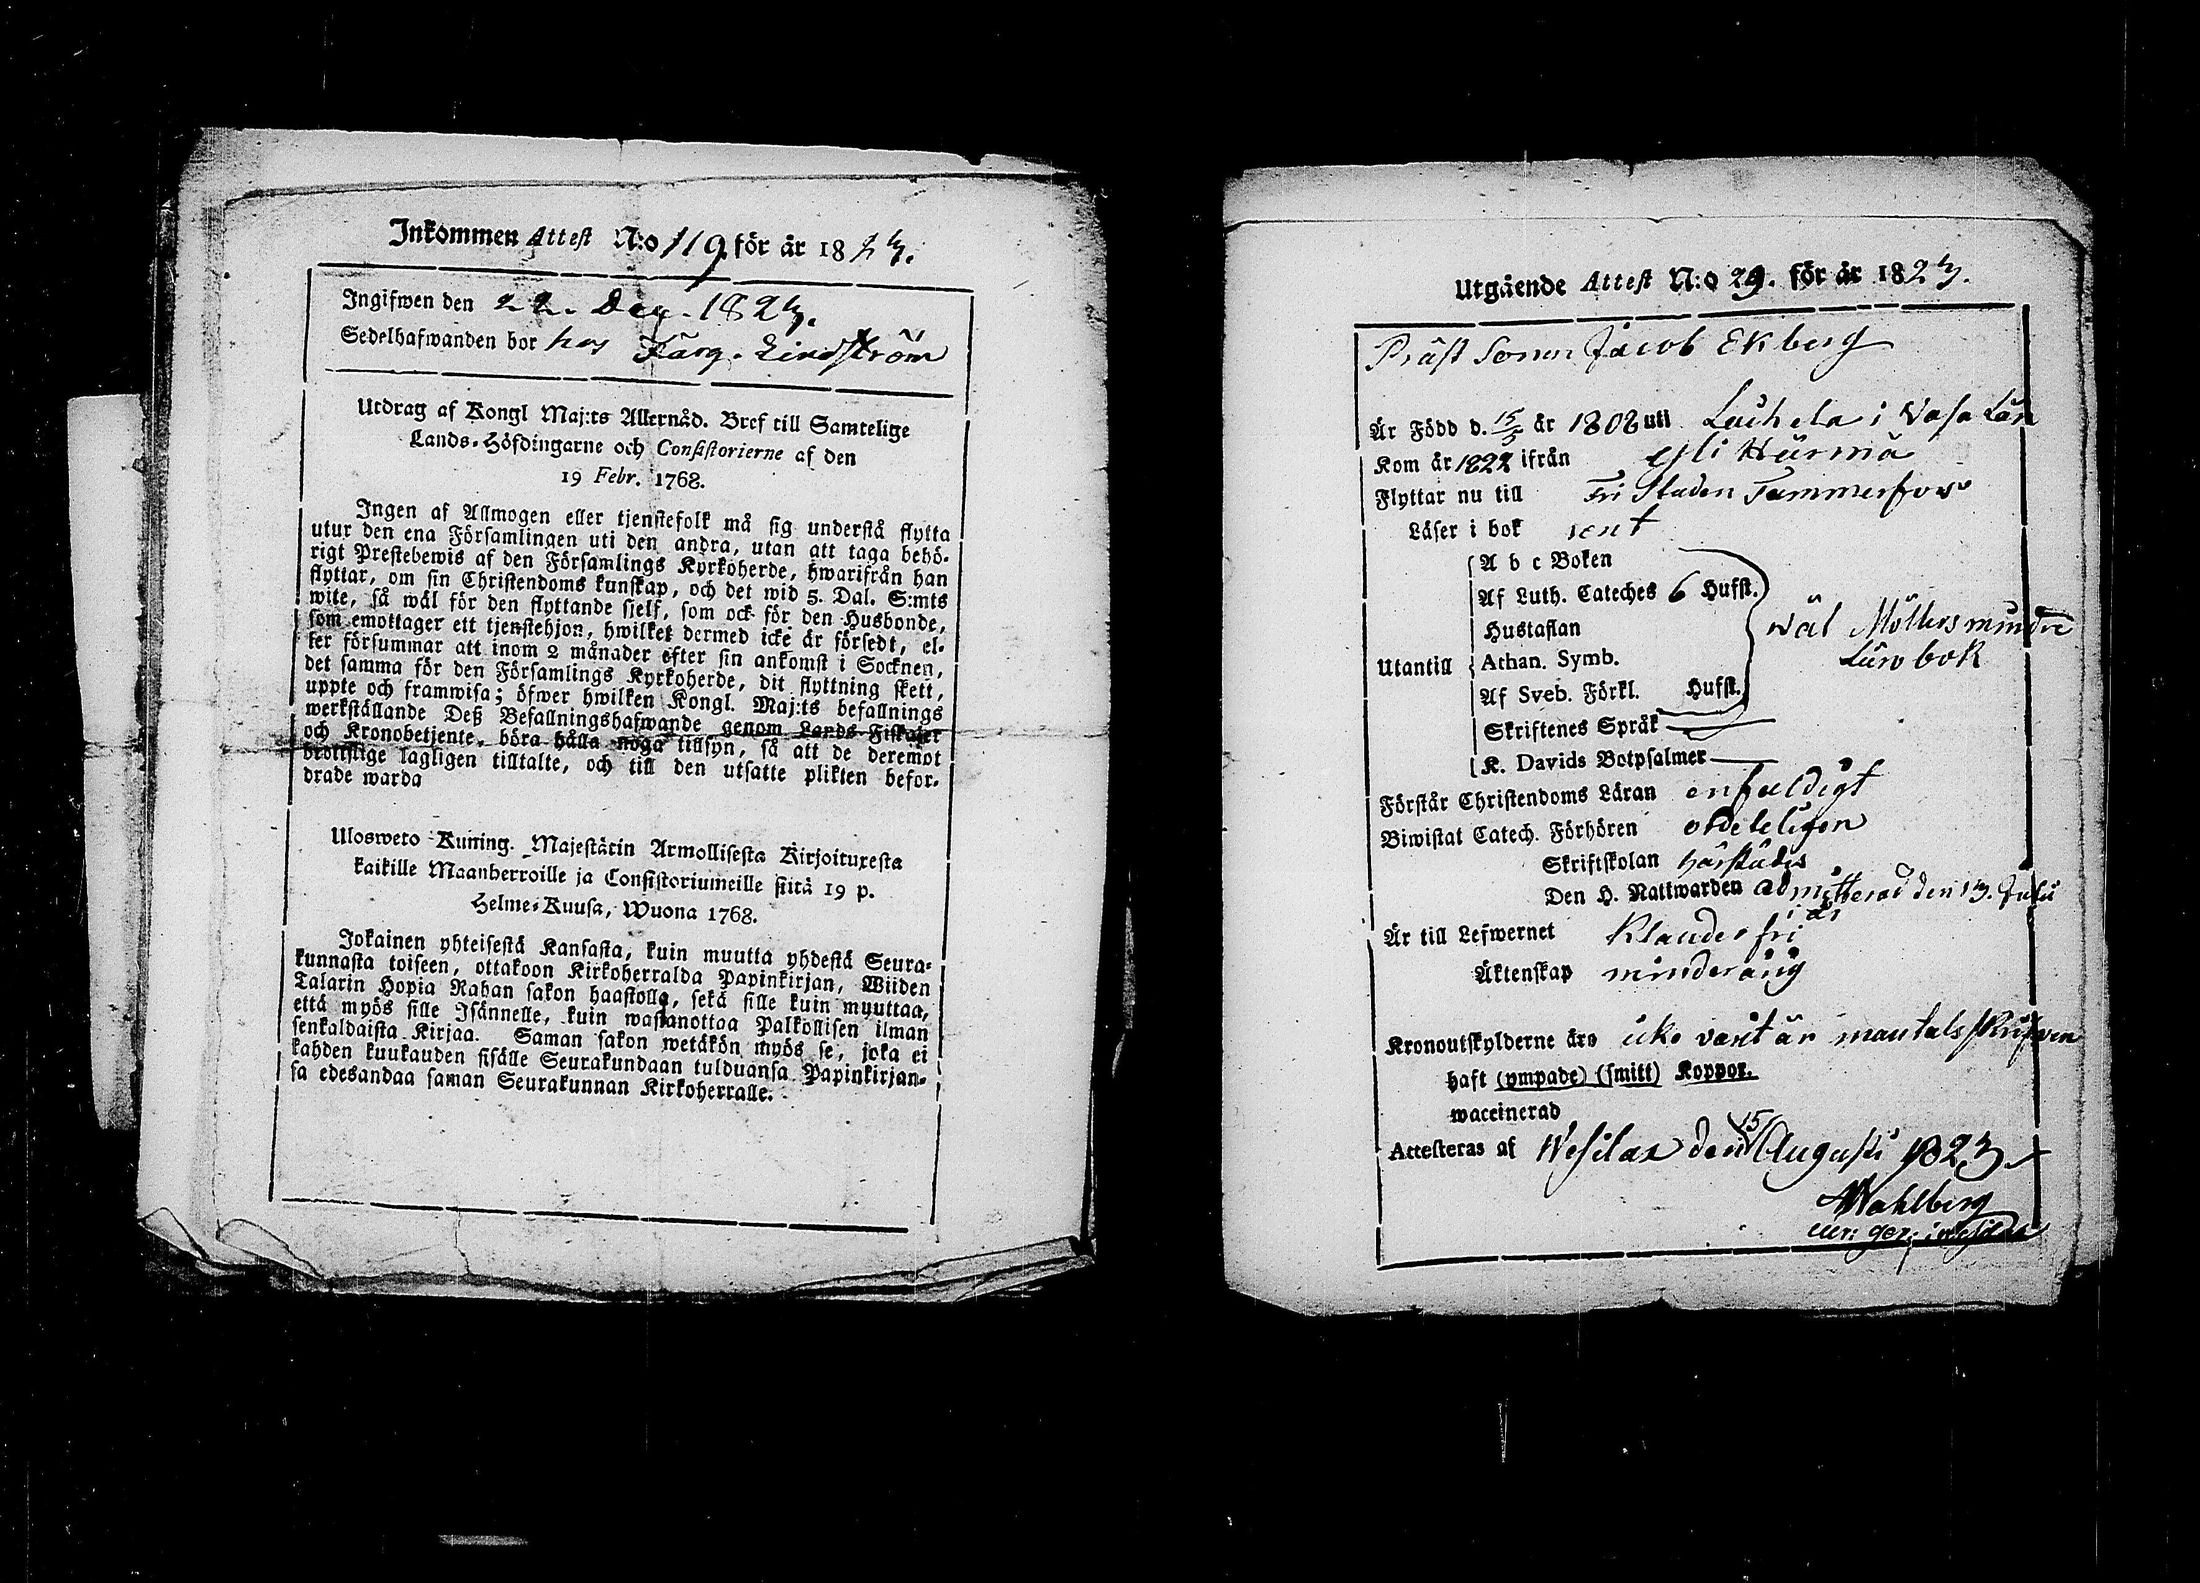 Inkommen Attest N:o 119. för år 1823.
Ingifwen den 22. Dec. 1823.
Sedelhafwanden bor hos Färg. Lindström
Utdrag af Kongl Maj:ts Allernåd. Bref till Samtelige
Lands-Höfdingarne och Consistorierne af den
19 Febr. 1768.
Ingen af Allmogen eller tjenstefolk må sig understå flytta
utur den ena Församlingen uti den andra, utan att taga behö-
rigt Prestebewis af den Församlings Kyrkoherde, hwarifrån han
flyttar, om sin Christendoms kunskap, och det wid 5. Dal. S:mts
wite, så wäl för den flyttande sjelf, som ock för den Husbonde,
som emottager ett tjenstehjon, hwilket dermed icke är försedt, el-
ler försummar att inom 2 månader efter sin ankomst i Socknen,
det samma för den Församlings Kyrkoherde, dit flyttning skett,
uppte och framwisa; öfwer hwilken Kongl. Maj:ts befallnings
werkställande Deß Befallningshafwande genom Lands-Fiskaler
och Kronobetjente, böra hålla noga tillsyn, så att de deremot
brottslige lagligen tilltalte, och till den utsatte plikten befor-
drade warda
Ulosweto Kuning. Majestätin Armollisesta Kirjoituxesta
kaikille Maanherroille ja Consistoriumeille siitä 19 p.
Helme-Kuusa, Wuona 1768.
Jokainen yhteisestä Kansasta, kuin muutta yhdestä Seura-
kunnasta toiseen, ottakoon Kirkoherralda Papinkirjan, Wiiden
Talarin Hopia Rahan sakon haastolla, sekä sille kuin muuttaa,
että myös sille Isännelle, kuin wastanottaa Palkollisen ilman
senkaldaista Kirjaa. Saman sakon wetäkön myös se, joka ei
kahden kuukauden sisälle Seurakundaan tulduansa Papinkirjan-
sa edesandaa saman Seurakunnan Kirkoherralle.
Utgående Attest N:o 29. för år 1823.
Präst Sonen Jacob Ekberg
Är Född d. 15/5 år 1808 uti Laihela i Vasa Län
Kom år 1822 ifrån Yli Härmä
Flyttar nu till Fri Staden Tammerfors
Läser i bok rent
A b c Boken
Af Luth. Cateches 6 Hufst.
Hustaflan wäl Möllers mindre
Utantill Athan. Symb. Läro bok
Af Sveb. Förkl. Hufst.
Skriftenes Språk
K. Davids Botpsalmer
Förstår Christendoms Läran enfaldigt
Biwistat Catech. Förhören ordeteligen
Skriftskolan härstädes
Den H. Nattwarden admitterad den 13. Julii
i år
Är till Lefwernet klanderfri
Äktenskap minderårig
Kronoutskylderne äro icke varit är mantalsskrifven
haft (ympade) (smitt) Koppor.
waccinerad
Attesteras af Wesilax den 15 Augusti 1823
Wahlberg